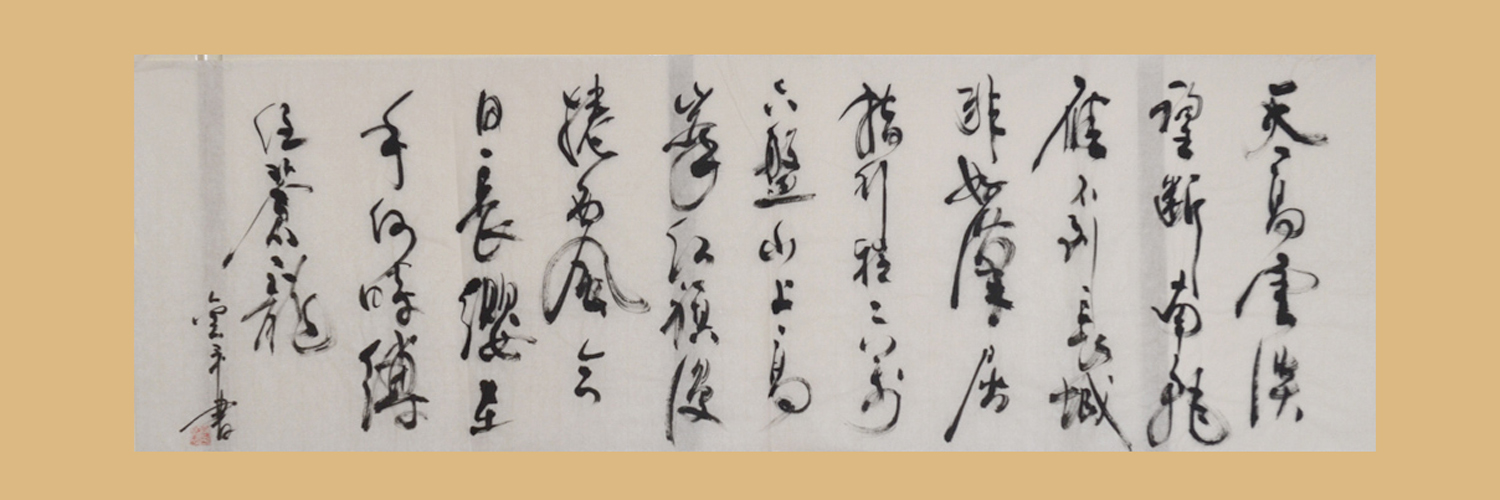 天高雲淡
望斷南飛
雁不到長城
非好漢屈
指行程二萬
六盤山上高
峯紅旗漫
捲西風今
日長纓在
手何時縛
住蒼龍
書